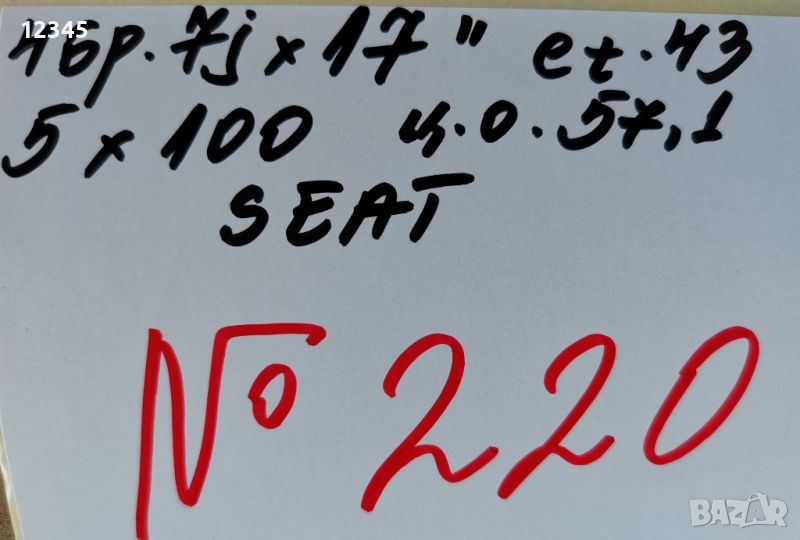 12345
4бр. 7j x 17" et. 43
5 x 100 ц.о. 57,1
SEAT
№ 220
BAZAR